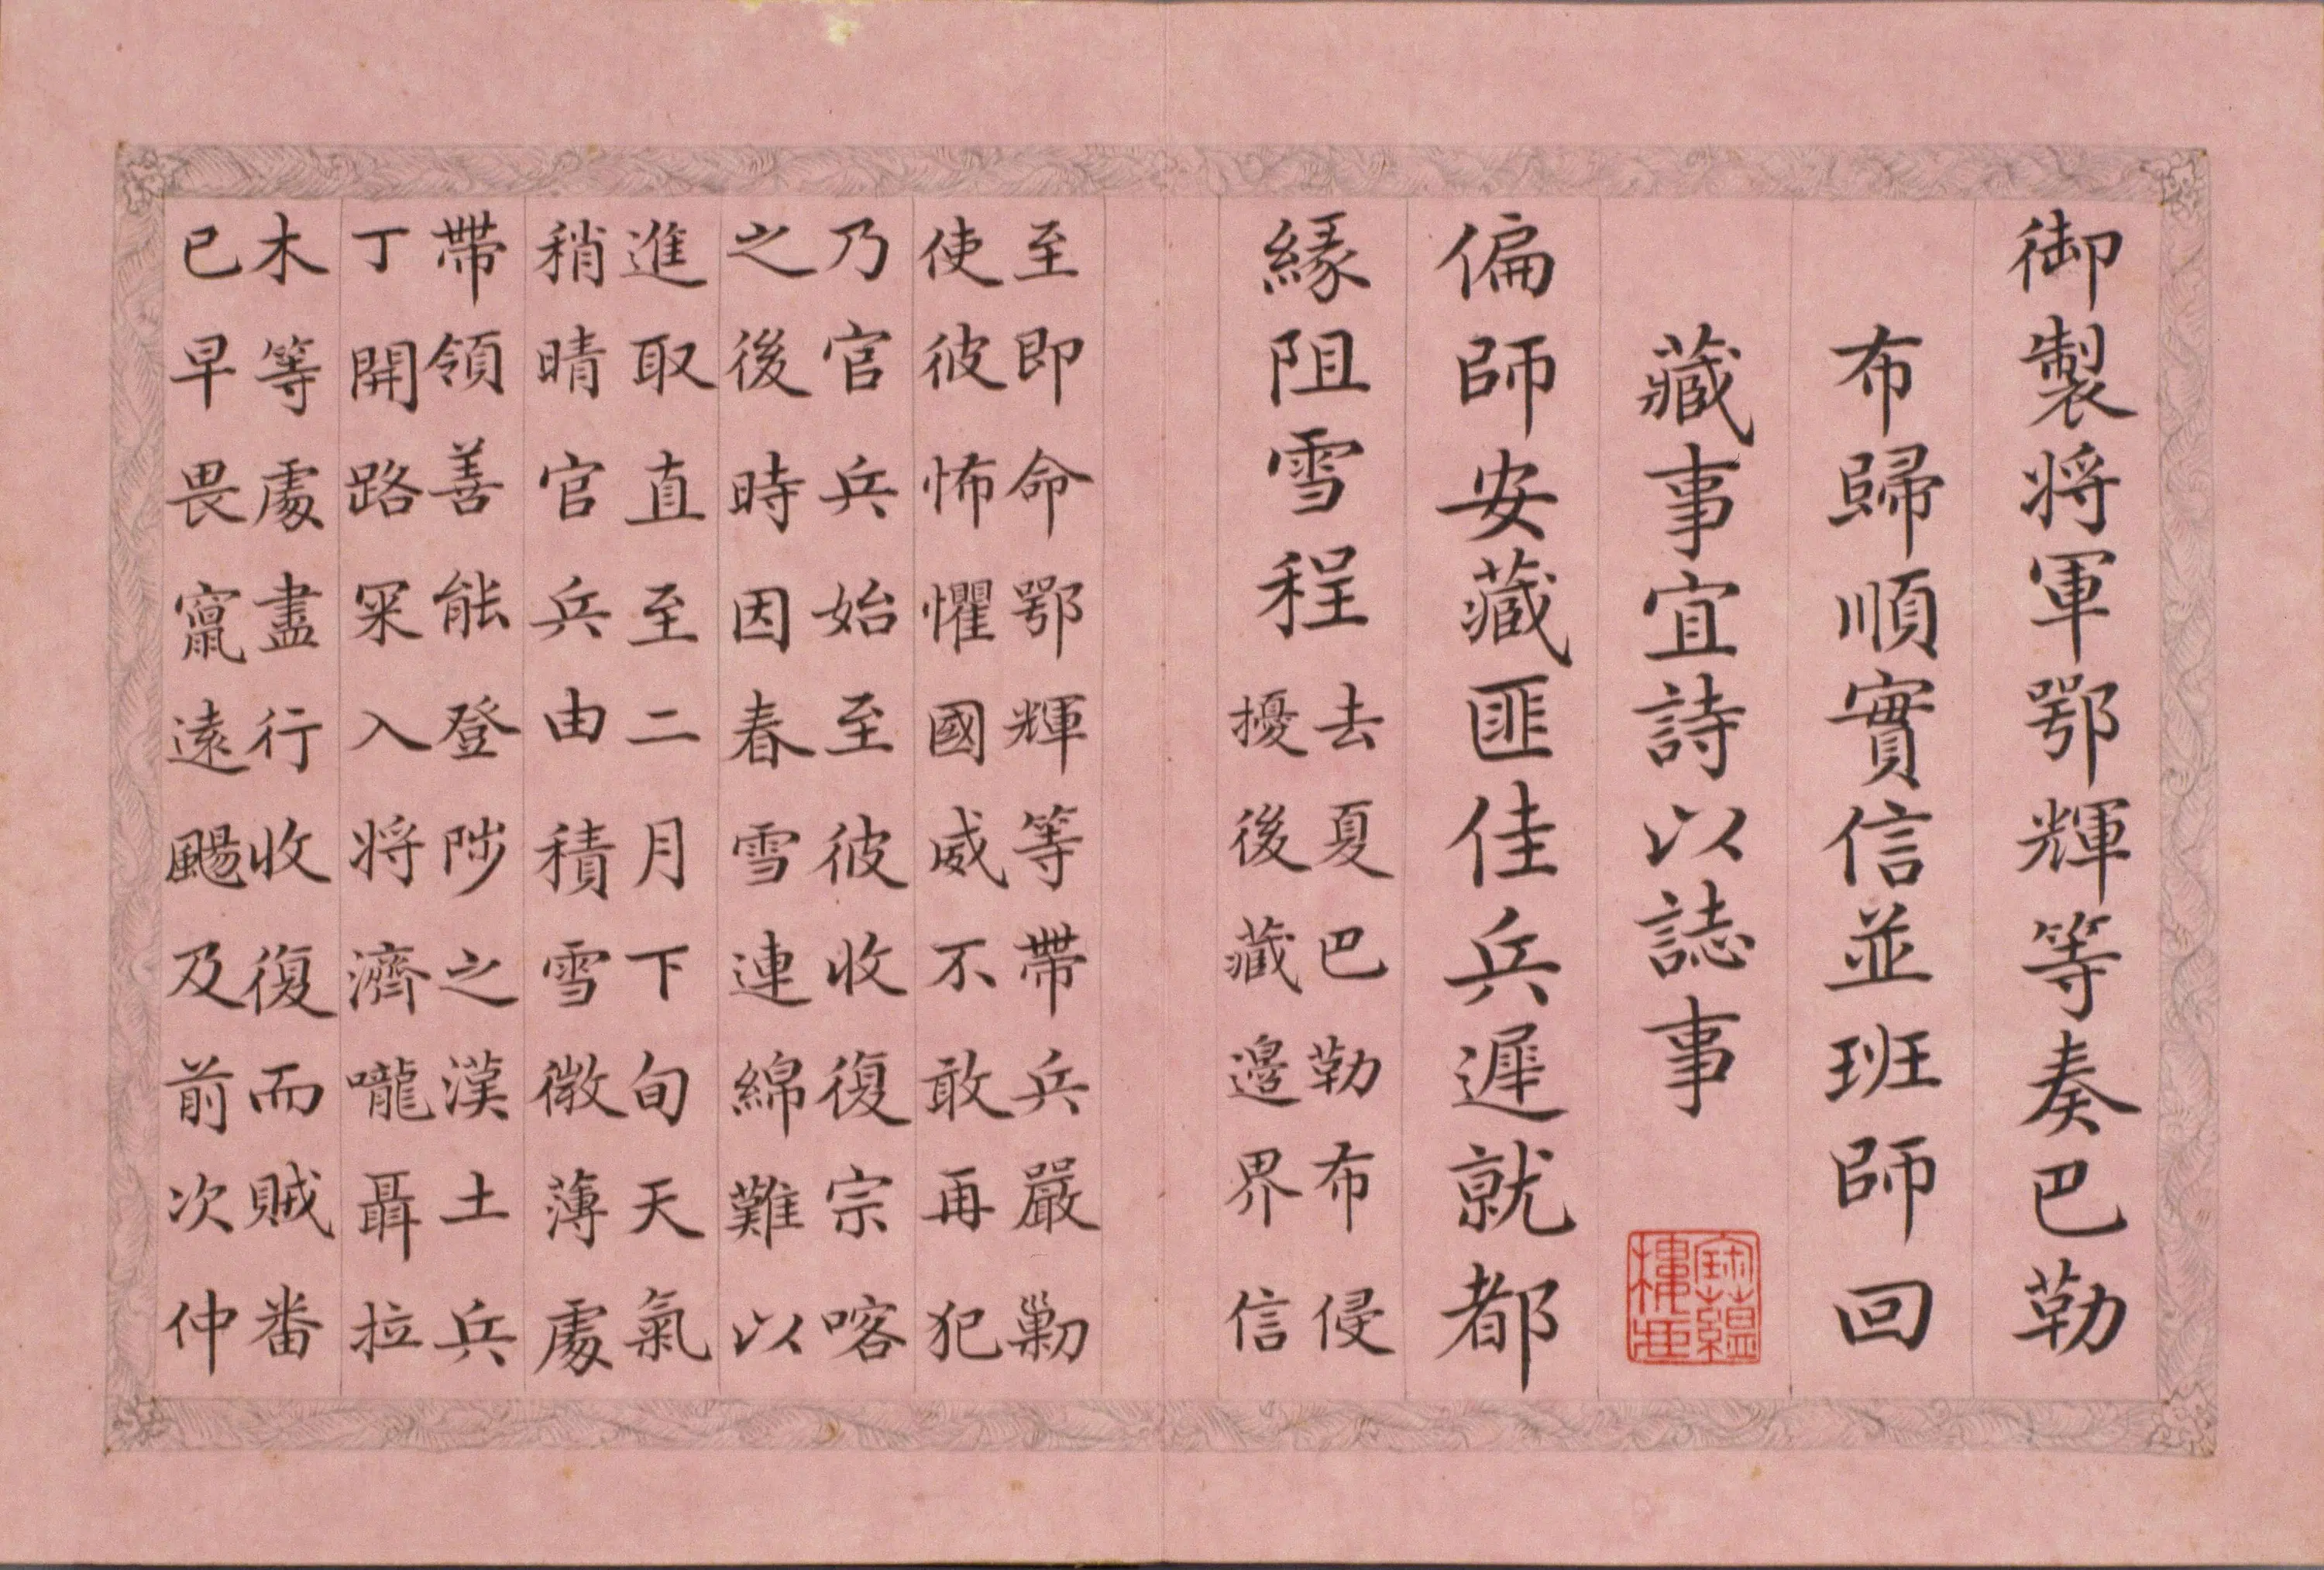 御製将軍鄂輝等奏巴勒
布歸順實信並班師回
藏事宜詩以誌事
偏師安藏匪佳兵遲就都
緣阻雪程
去夏巴勒布侵
擾後藏邊界信
至即命鄂輝等帶兵嚴勦
使彼怖懼國威不敢再犯
乃官兵始至彼收復宗喀
之後時因春雪連綿難以
進取直至二月下旬天氣
稍晴官兵由積雪微薄處
帶領善能登陟之漢土兵
丁開路罙入将濟嚨聶拉
木等處盡行收復而賊番
已早畏竄遠颺及前次仲